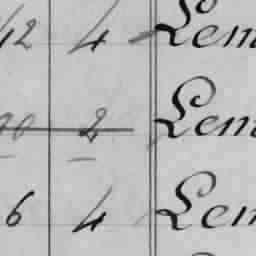 42 4 Lem
2 Lem
6 4 Lem